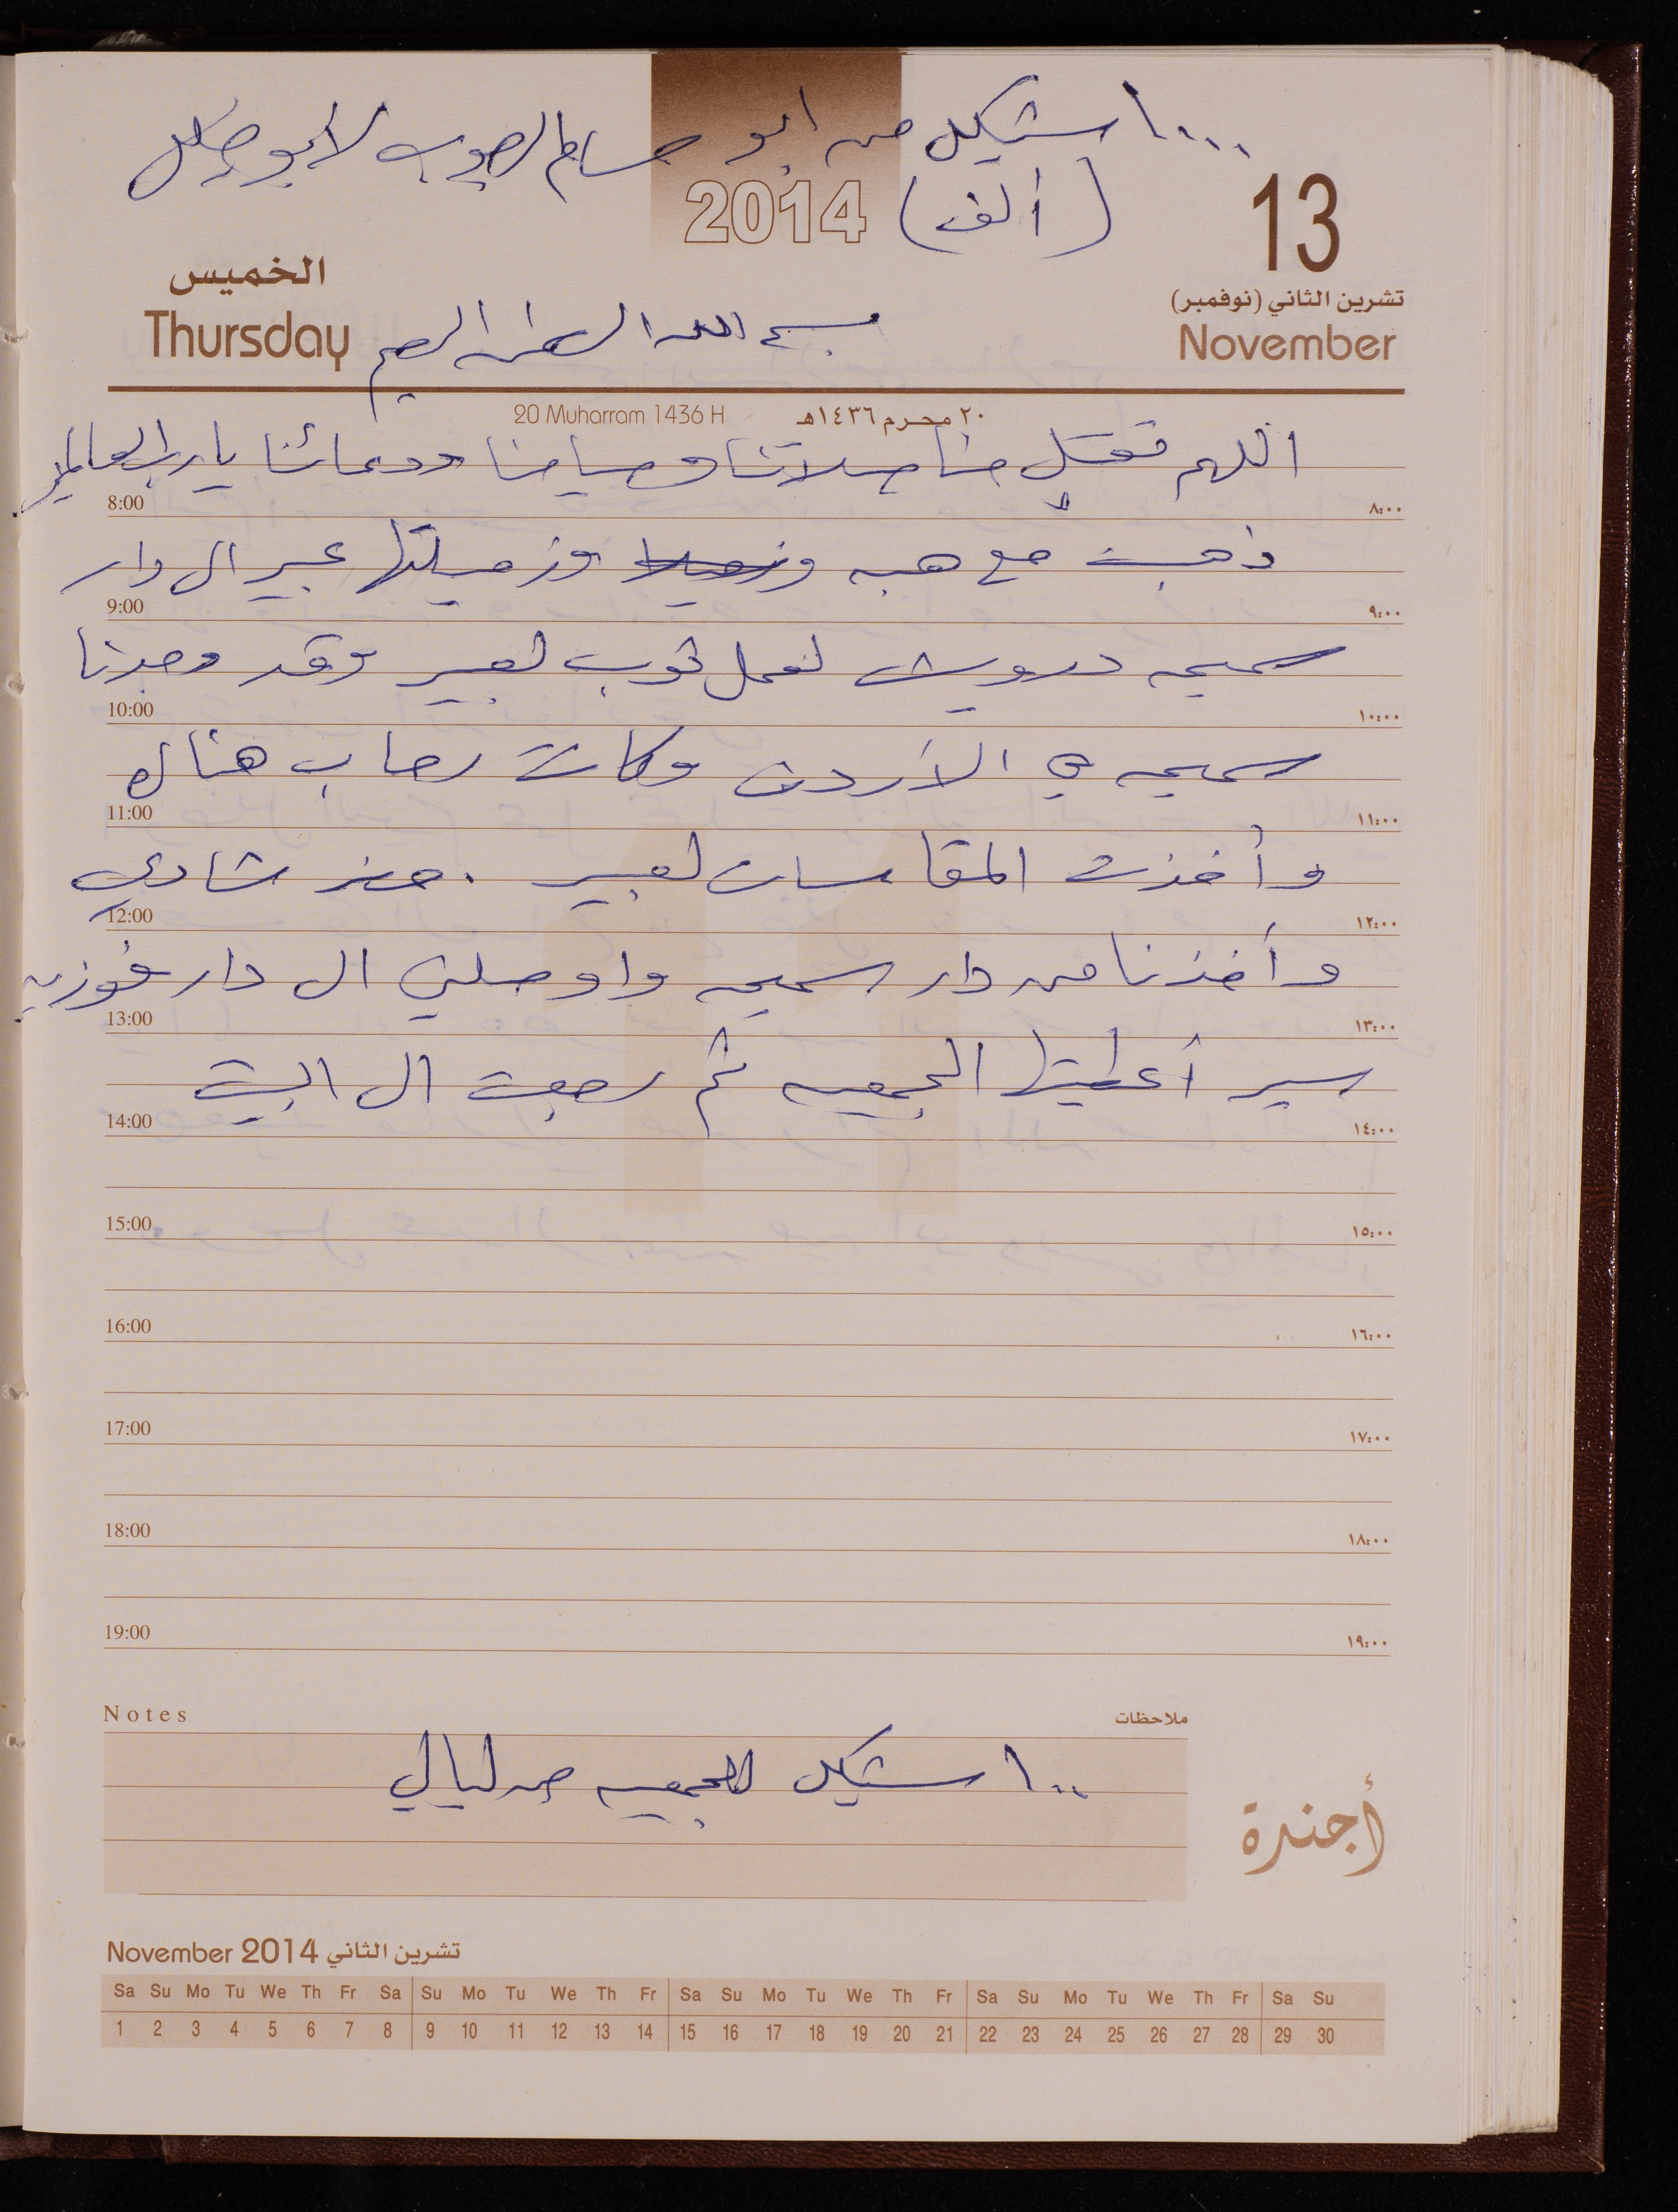 ١٠٠٠ شيكل من ابو حسام الصوب لأبو
(ألف)
2014
13
الخميس
تشرين الثاني (نوفمبر)
Thursday
November
بسم الله الرحمن الرحيم
20 Muharram 1436 H
٢٠ محرم ١٤٣٦هـ
اللهم تقبل منا صلاتنا وصيامنا ودعائنا يا رب العالمين
8:00 ٨:٠٠
ذهبت مع هبه وزميلتها عبير الى دار
9:00 ٩:٠٠
سميحه درويش لعمل ثوب لعبير وقد وجدنا
10:00 ١٠:٠٠
سميحه في الأردن وكانت رحاب هناك
11:00 ١١:٠٠
وأخذت المقاسات لعبير . حضر شادي
12:00 ١٢:٠٠
وأخذنا من دار سميحه واوصلني الى دار فوزيه
13:00 ١٣:٠٠
سير أعطيتها الجمعيه ثم رجعت الى البيت
14:00 ١٤:٠٠
15:00 ١٥:٠٠
16:00 ١٦:٠٠
17:00 ١٧:٠٠
18:00 ١٨:٠٠
19:00 ١٩:٠٠
Notes ملاحظات
١٠٠ شيكل الجمعيه من ليالي
أجندة
November 2014 تشرين الثاني
Sa Su Mo Tu We Th Fr Sa Su Mo Tu We Th Fr Sa Su Mo Tu We Th Fr Sa Su Mo Tu We Th Fr Sa Su
1 2 3 4 5 6 7 8 9 10 11 12 13 14 15 16 17 18 19 20 21 22 23 24 25 26 27 28 29 30